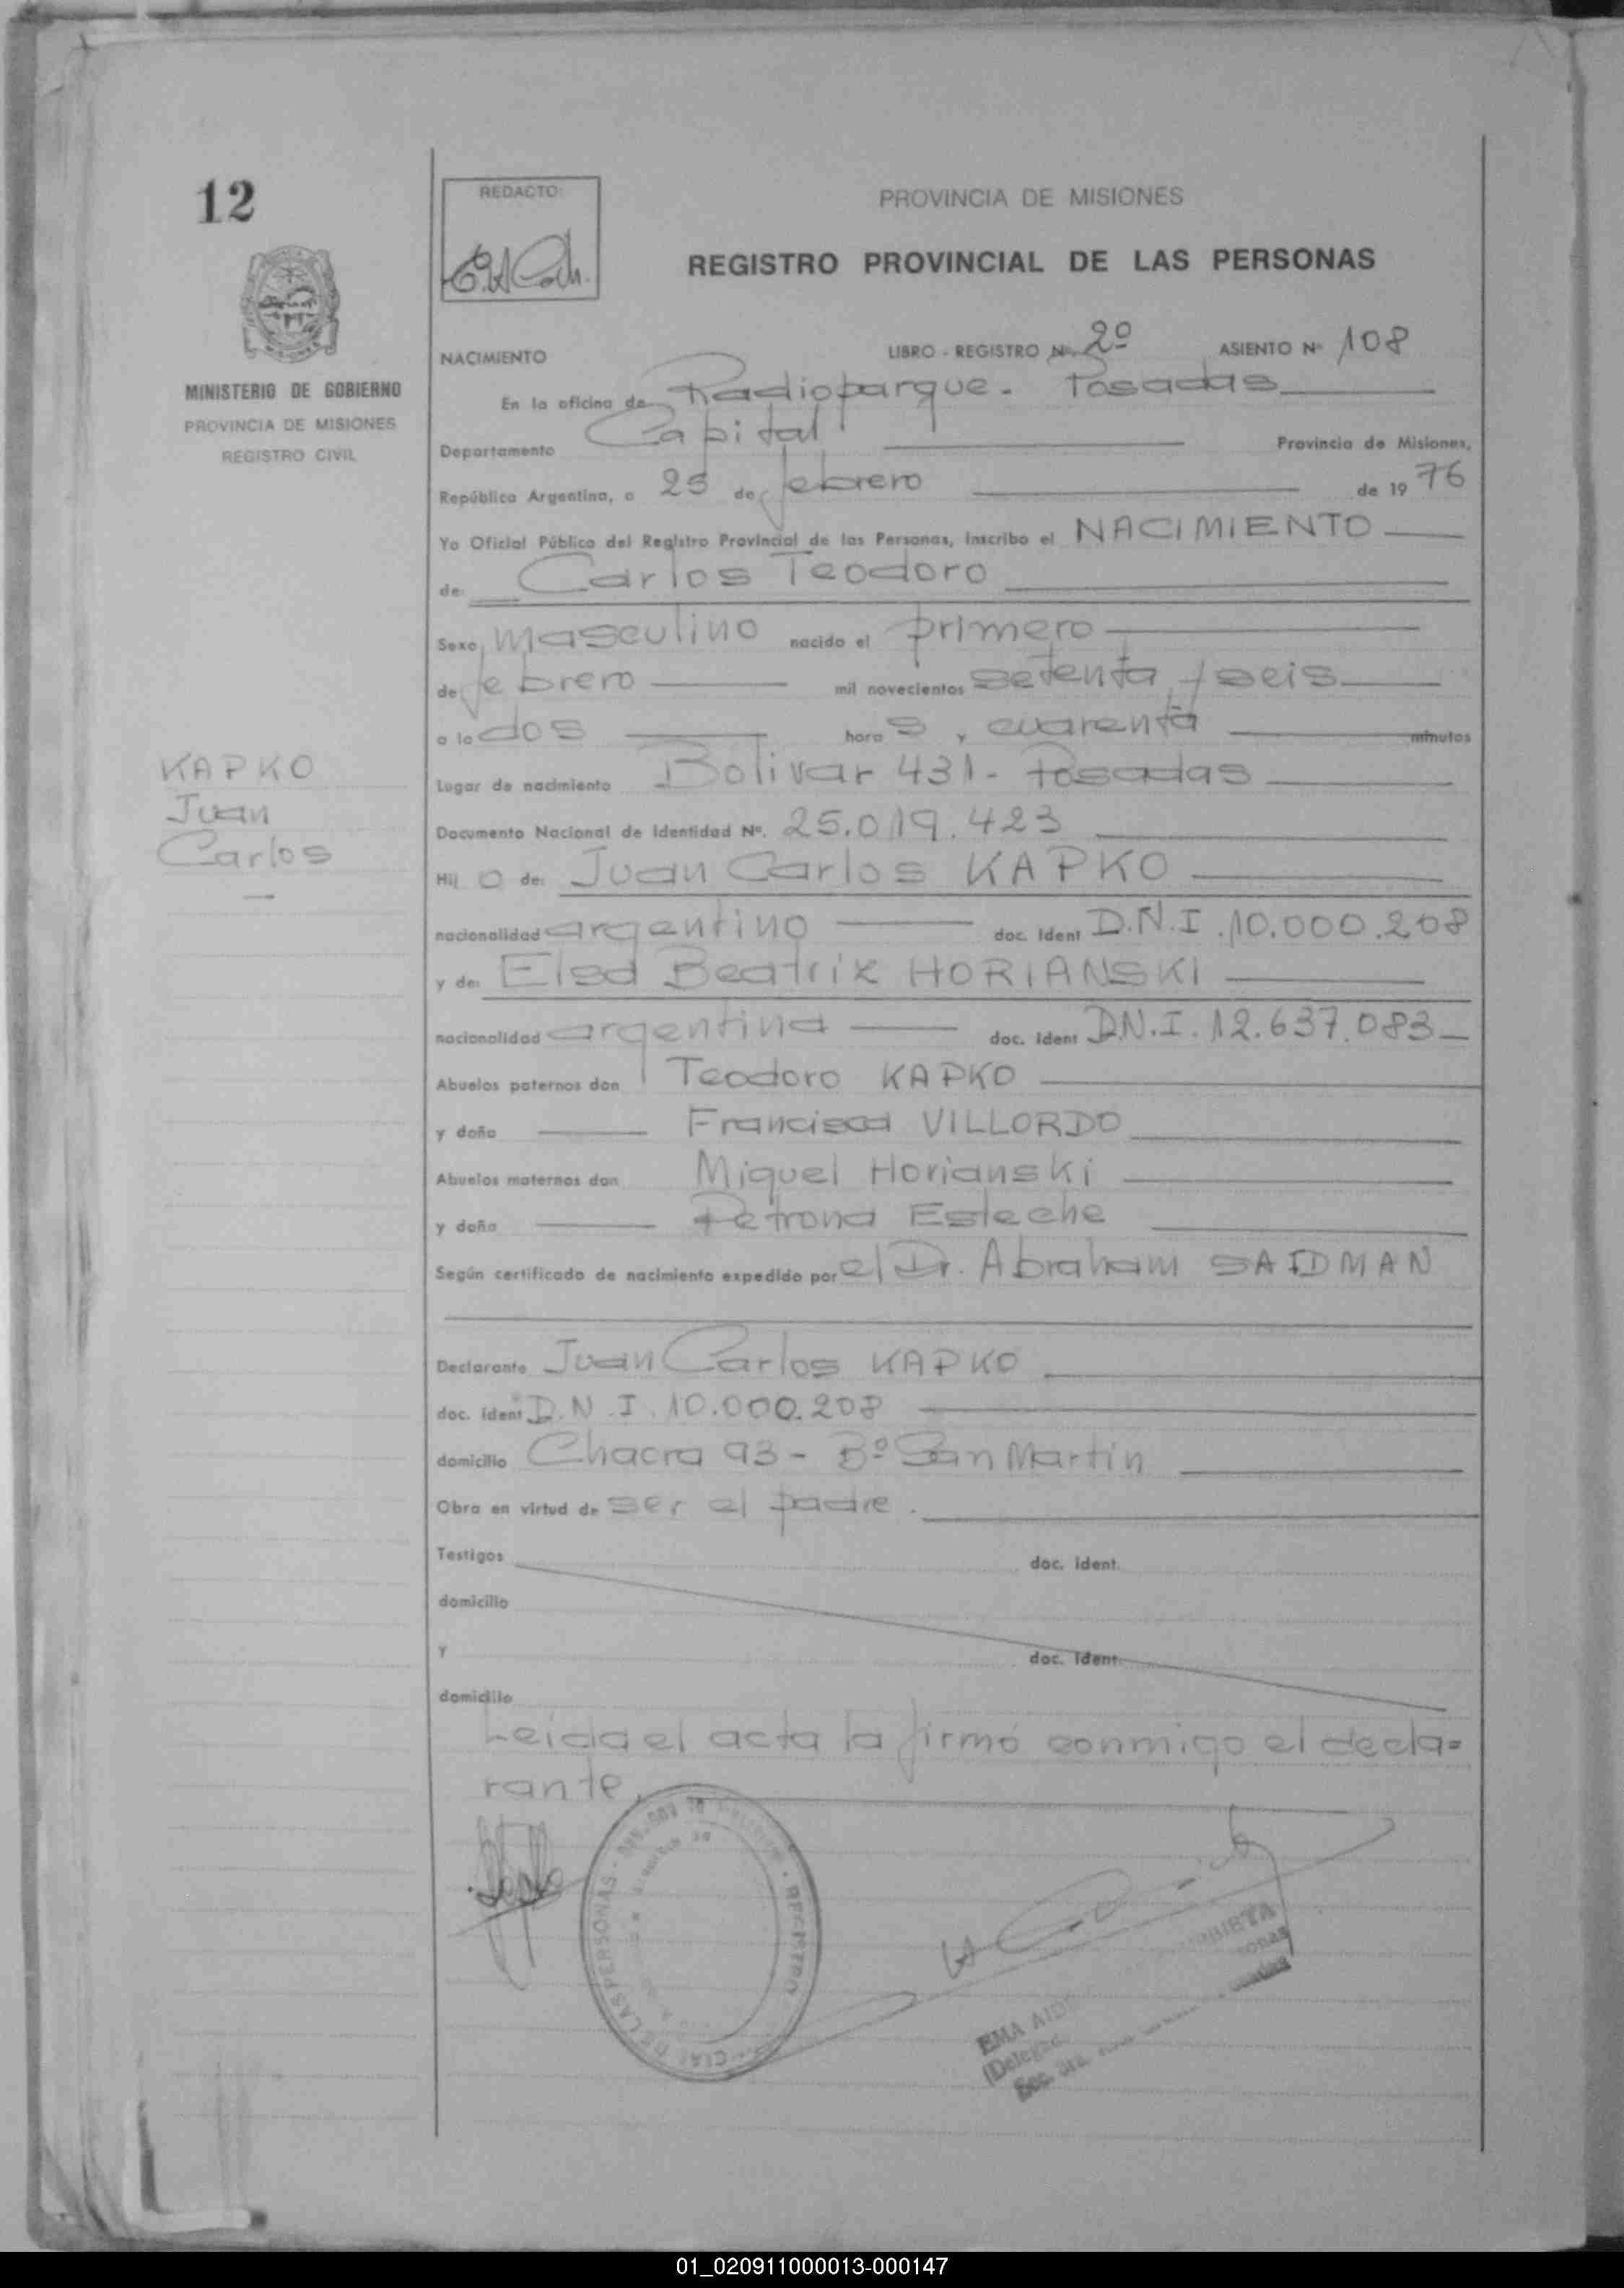 12
REDACTO:
PROVINCIA DE MISIONES
REGISTRO PROVINCIAL DE LAS PERSONAS
NACIMIENTO
LIBRO - REGISTRO Nº 2º ASIENTO Nº 108
MINISTERIO DE GOBIERNO
PROVINCIA DE MISIONES
REGISTRO CIVIL
En la oficina de Radioparque - Posadas
Departamento Capital Provincia de Misiones,
República Argentina, a 25 de febrero de 1976
Yo Oficial Público del Registro Provincial de las Personas, inscribo el NACIMIENTO
de: Carlos Teodoro
Sexo masculino nacido el primero
de febrero mil novecientos setenta y seis
a la dos horas y cuarenta minutos
KAPKO
Juan
Carlos
Lugar de nacimiento Bolivar 431 - Posadas
Documento Nacional de Identidad Nº. 25.019.423
Hijo de: Juan Carlos KAPKO
nacionalidad argentino doc. Ident D.N.I. 10.000.208
y de: Elsa Beatriz HORIANSKI
nacionalidad argentina doc. Ident D.N.I. 12.637.083
Abuelos paternos don Teodoro KAPKO
y doña Francisca VILLORDO
Abuelos maternos don Miguel Horianski
y doña Petrona Esteche
Según certificado de nacimiento expedido por el Dr. Abraham SAIDMAN
Declarante Juan Carlos KAPKO
doc. ident D.N.I. 10.000.208
domicilio Chacra 93 - Bº San Martín
Obra en virtud de ser el padre.
Testigos doc. ident.
domicilio
y doc. ident.
domicilio
Leida el acta la firmó conmigo el decla=
rante,
DE LAS PERSONAS · REGISTRO
EMA
01_020911000013-000147